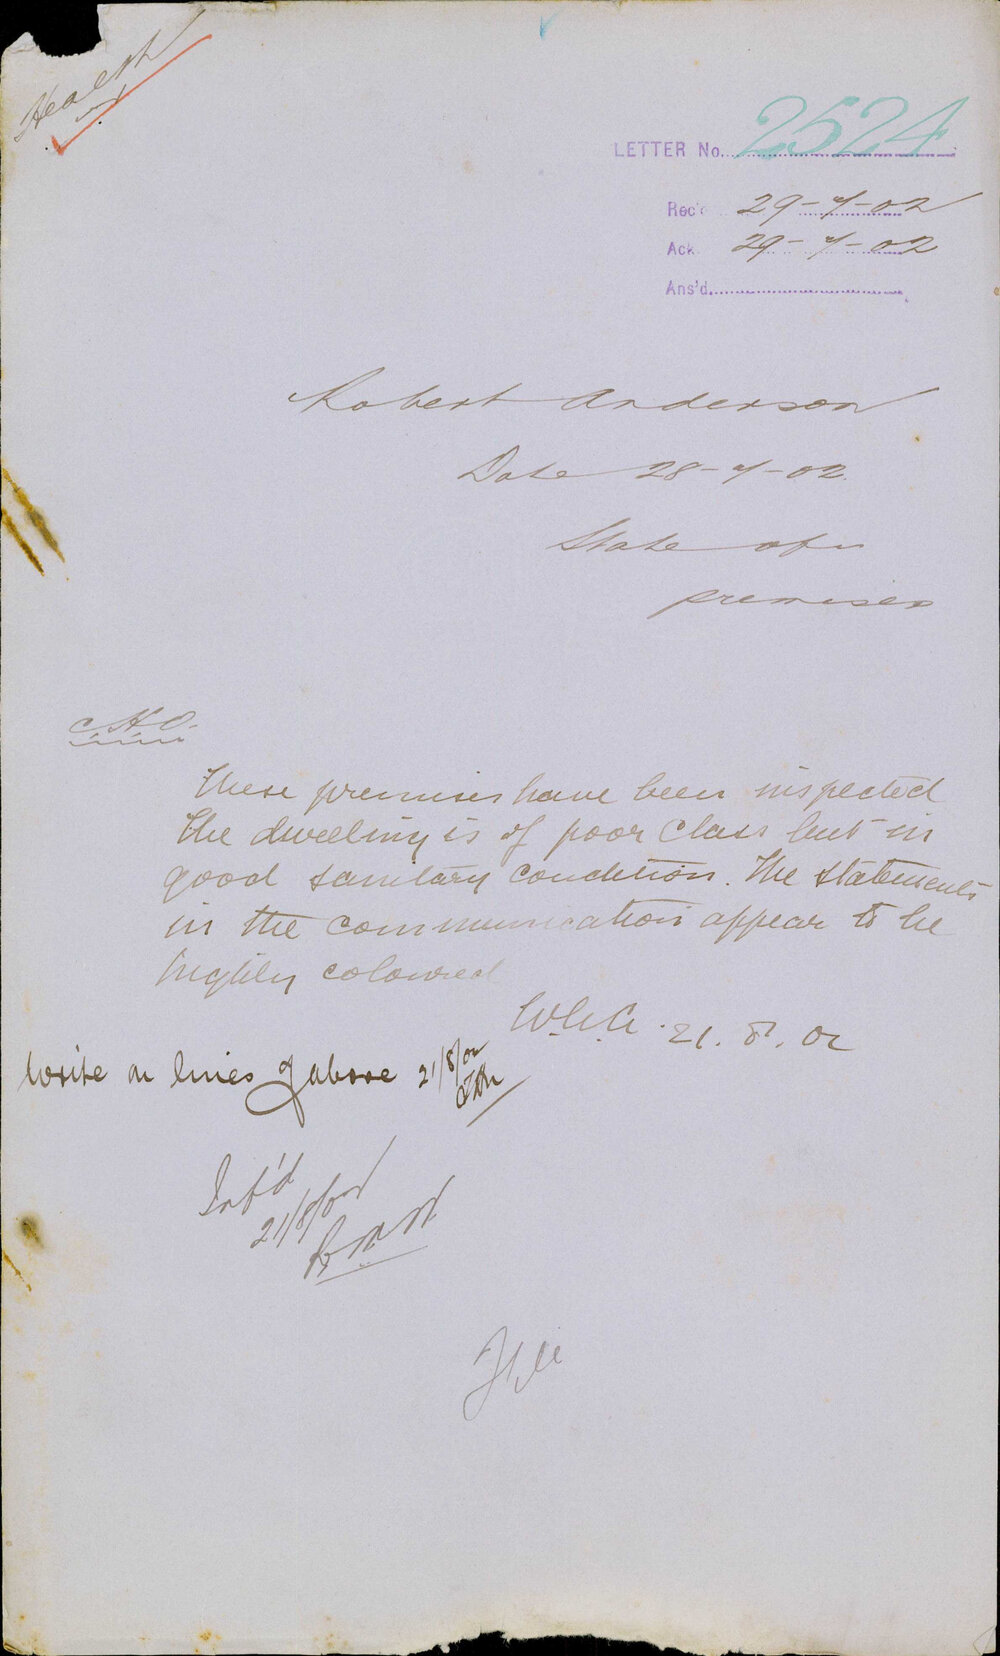 Health
LETTER No. 2524
Rec'd 29-7-02
Ack. 29-7-02
Ans'd.
Robert Anderson
Date 28-7-02.
State of
premises
C.H.O.
These premises have been inspected
The dwelling is of poor class but in
good sanitary condition. The statements
in the communication appear to be
highly coloured
21.8.02
Write on lines of above 21/8/02
Inf'd
21/8/02
File